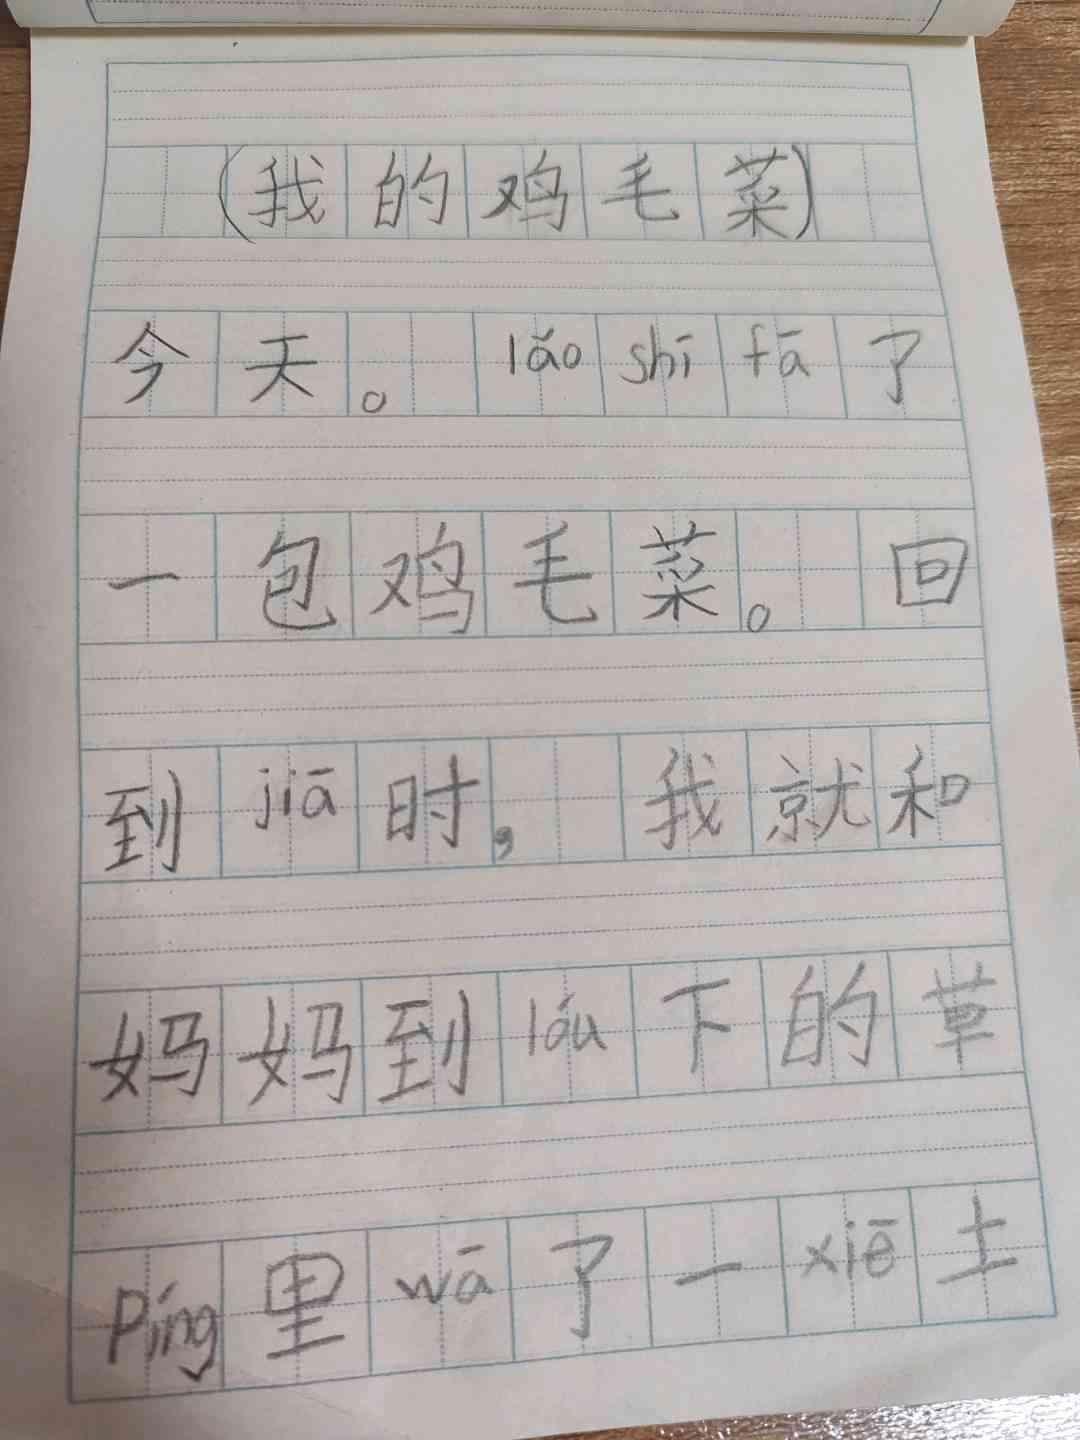 (我的鸡毛菜)
今天。lǎo shī fā了
一包鸡毛菜。回
到jiā时,我就和
妈妈到lóu下的草
píng里wā了一xiē土